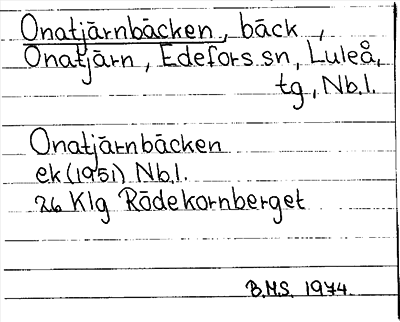 Onatjärnbäcken, bäck,
Onatjärn, Edefors sn, Luleå,
tg, Nb.l.
Onatjärnbäcken
ek (1951) Nb.l.
26 Klg Rödekornberget
B.M.S. 1974.